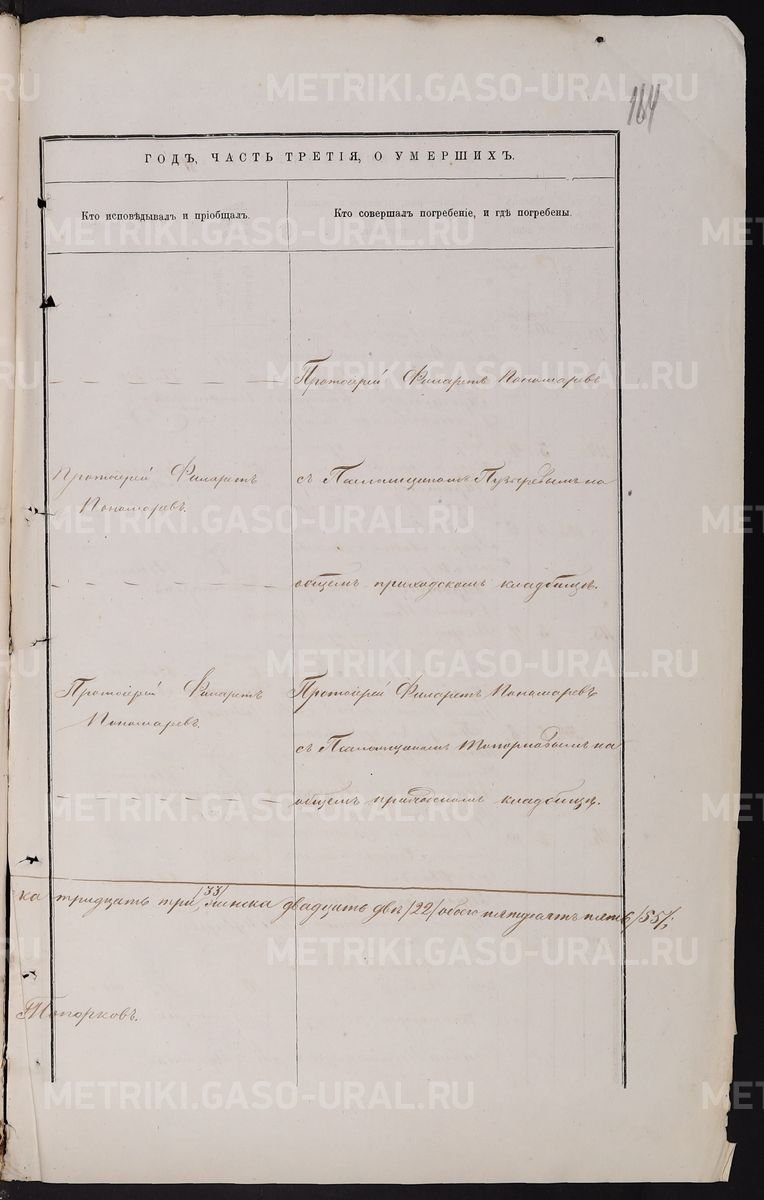 164
ГОДЪ, ЧАСТЬ ТРЕТІЯ, О УМЕРШИХЪ.
Кто исповѣдывалъ и пріобщалъ.
Кто совершалъ погребеніе, и гдѣ погребены.
Протоіерей Филаретъ Пономаревъ
Протоіерей Филаретъ
Пономаревъ.
съ Псаломщикомъ на
общемъ приходскомъ кладбищѣ.
Протоіерей Филаретъ
Пономаревъ.
Протоіерей Филаретъ Пономаревъ
съ Псаломщикомъ Топорковымъ на
общемъ приходскомъ кладбищѣ.
ка тридцать три /33/ женска двадцать двѣ /22/ обоего пятьдесятъ пять /55/;
Топорковъ.
METRIKI.GASO-URAL.RU